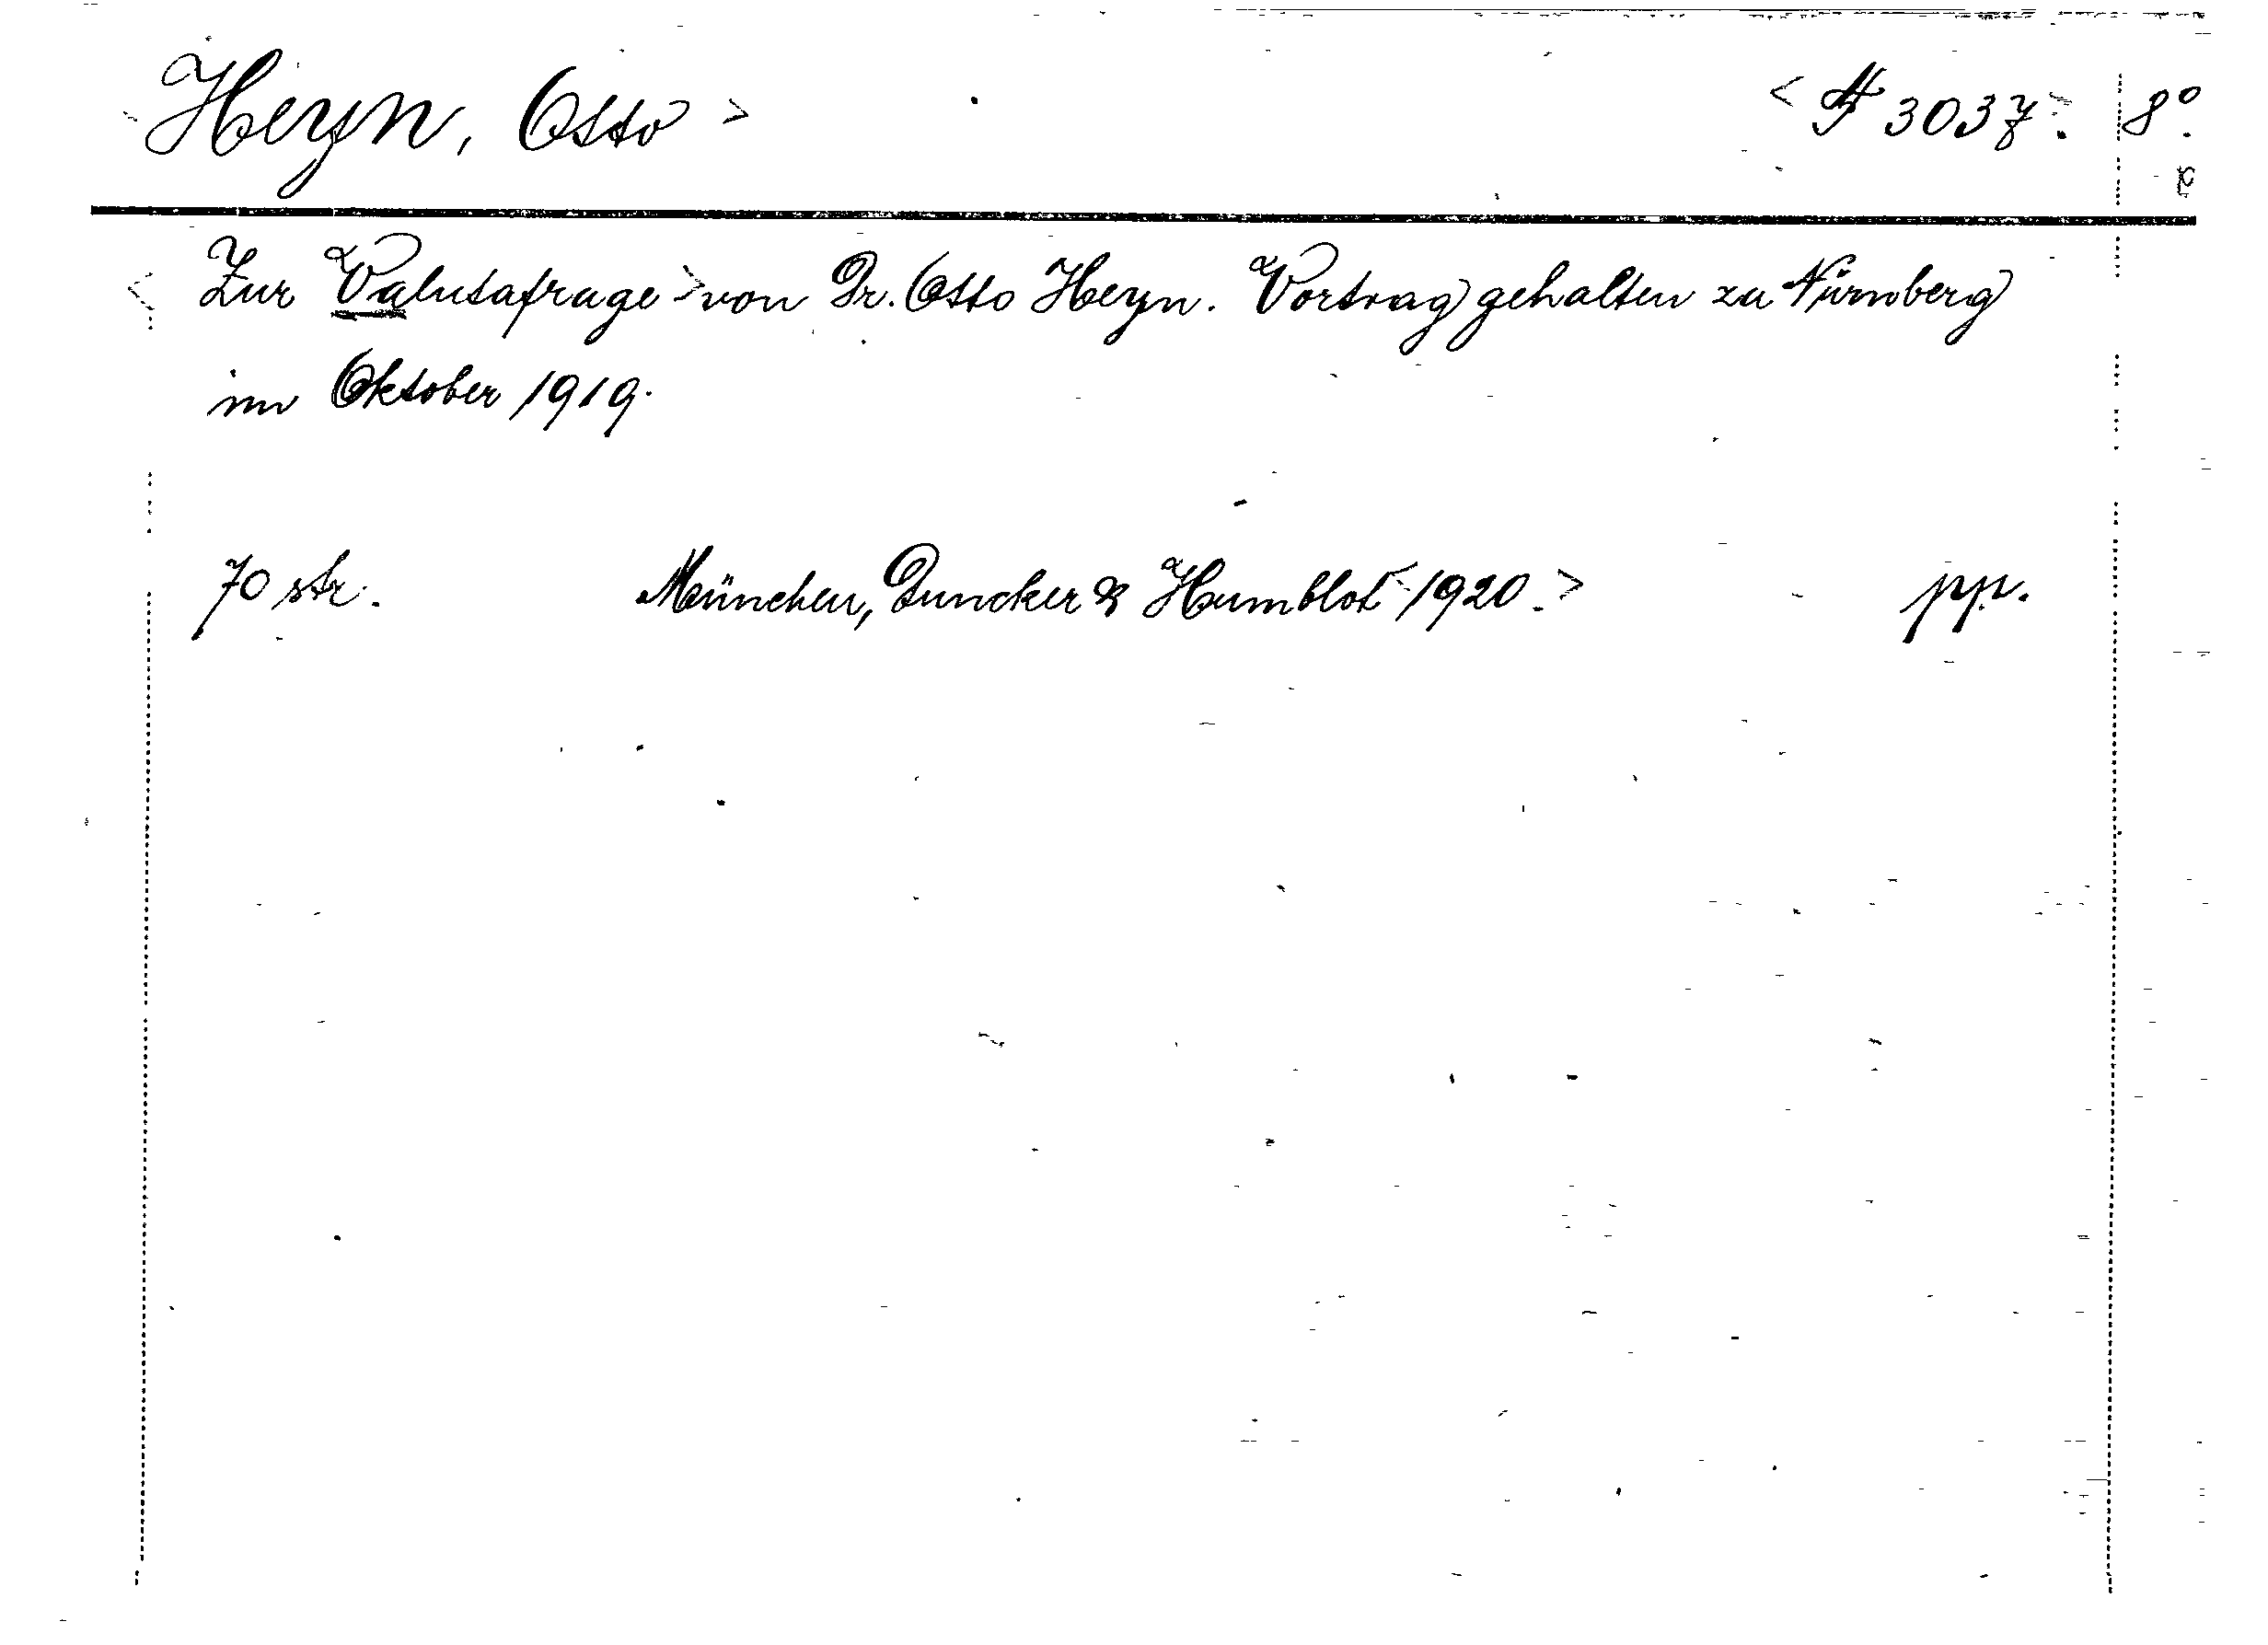 < Heyn, Otto > < # 3037 > 8°.
< Zur Valutafrage > von Dr. Otto Heyn. Vortrag gehalten zu Nürnberg
im Oktober 1919.
70 str. München, Duncker & Humblot < 1920. > pp.